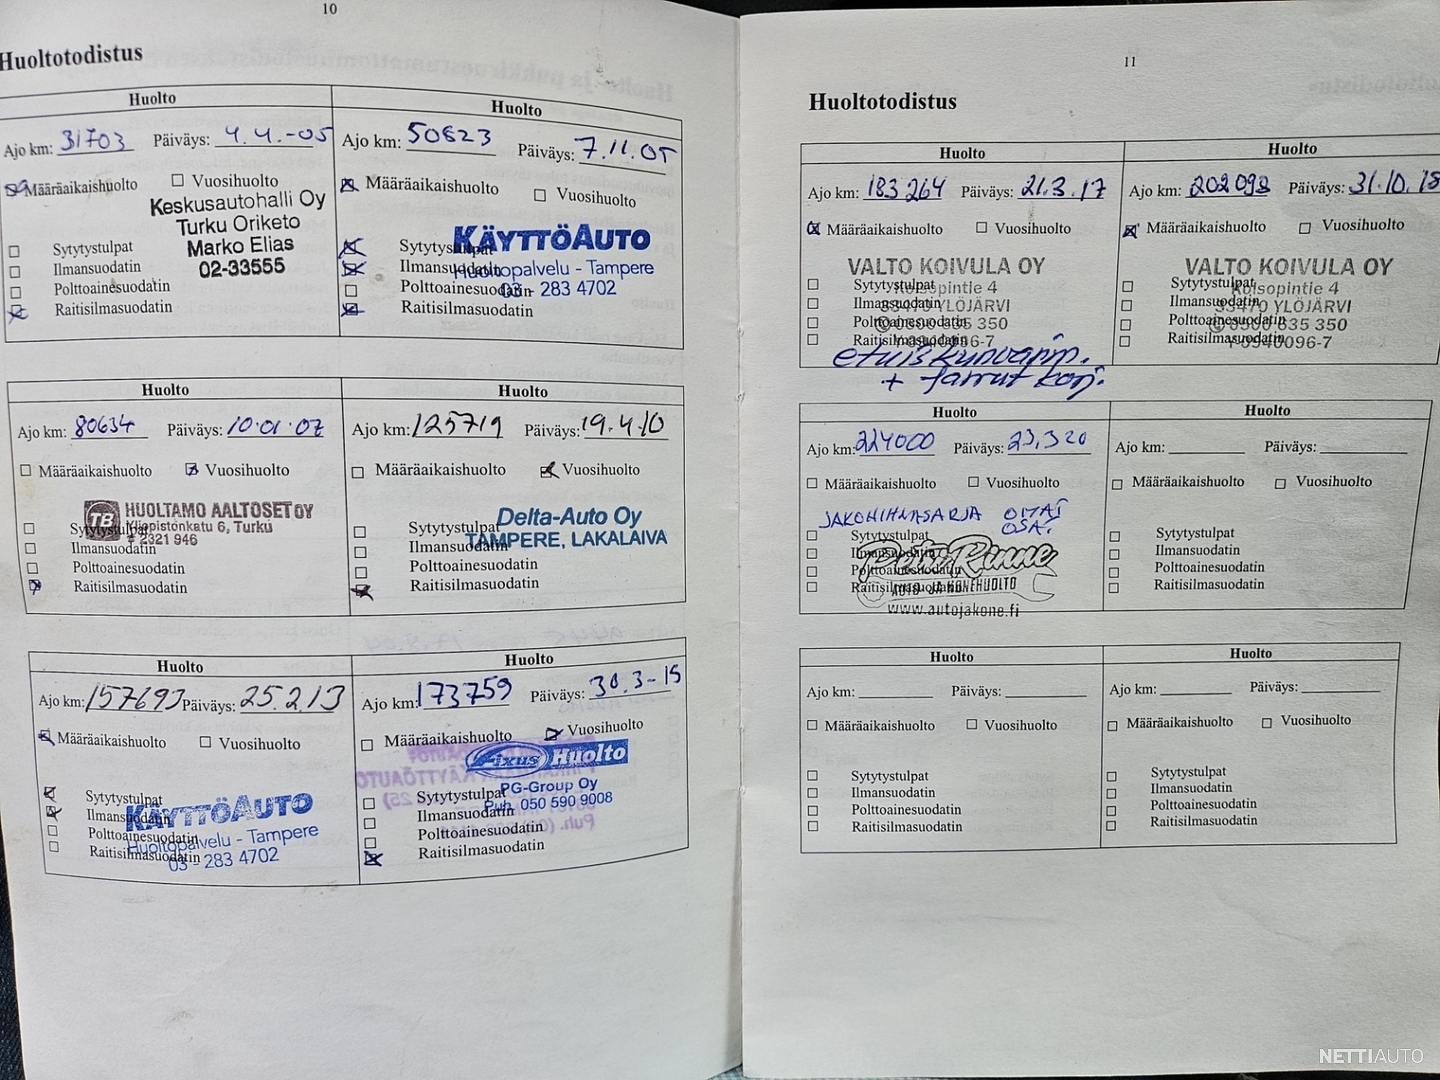 10
Huoltotodistus
Huolto
Ajo km: 31703 Päiväys: 4.4.-05
Määräaikaishuolto Vuosihuolto
Keskusautohalli Oy
Turku Oriketo
Marko Elias
02-33555
Sytytystulpat
Ilmansuodatin
Polttoainesuodatin
Raitisilmasuodatin
Huolto
Ajo km: 50823 Päiväys: 7.11.05
Määräaikaishuolto Vuosihuolto
KÄYTTÖAUTO
Huoltopalvelu - Tampere
03 - 283 4702
Sytytystulpat
Ilmansuodatin
Polttoainesuodatin
Raitisilmasuodatin
Huolto
Ajo km: 80634 Päiväys: 10.01.07
Määräaikaishuolto Vuosihuolto
TB HUOLTAMO AALTOSET OY
Yliopistonkatu 6, Turku
2321 946
Sytytystulpat
Ilmansuodatin
Polttoainesuodatin
Raitisilmasuodatin
Huolto
Ajo km: 125719 Päiväys: 19.4.10
Määräaikaishuolto Vuosihuolto
Delta-Auto Oy
TAMPERE, LAKALAIVA
Sytytystulpat
Ilmansuodatin
Polttoainesuodatin
Raitisilmasuodatin
Huolto
Ajo km: 157693 Päiväys: 25.2.13
Määräaikaishuolto Vuosihuolto
KÄYTTÖAUTO
Huoltopalvelu - Tampere
03 - 283 4702
Sytytystulpat
Ilmansuodatin
Polttoainesuodatin
Raitisilmasuodatin
Huolto
Ajo km: 173759 Päiväys: 30.3-15
Määräaikaishuolto Vuosihuolto
Fixus Huolto
PG-Group Oy
Puh. 050 590 9008
Sytytystulpat
Ilmansuodatin
Polttoainesuodatin
Raitisilmasuodatin
11
Huoltotodistus
Huolto
Ajo km: 183264 Päiväys: 21.3.17
Määräaikaishuolto Vuosihuolto
VALTO KOIVULA OY
Koisopintie 4
33470 YLÖJÄRVI
0500 835 350
Y-0940096-7
Sytytystulpat
Ilmansuodatin
Polttoainesuodatin
Raitisilmasuodatin
+ jarrut korj.
Huolto
Ajo km: 202098 Päiväys: 31.10.18
Määräaikaishuolto Vuosihuolto
VALTO KOIVULA OY
Koisopintie 4
33470 YLÖJÄRVI
0500 835 350
Y-0940096-7
Sytytystulpat
Ilmansuodatin
Polttoainesuodatin
Raitisilmasuodatin
Huolto
Ajo km: 224000 Päiväys: 23.3 20
Määräaikaishuolto Vuosihuolto
JAKOHIHNASARJA OMAT
OSAT
Petri Rinne
AUTO JA KONEHUOLTO
www.autojakone.fi
Sytytystulpat
Ilmansuodatin
Polttoainesuodatin
Raitisilmasuodatin
Huolto
Ajo km: Päiväys:
Määräaikaishuolto Vuosihuolto
Sytytystulpat
Ilmansuodatin
Polttoainesuodatin
Raitisilmasuodatin
Huolto
Ajo km: Päiväys:
Määräaikaishuolto Vuosihuolto
Sytytystulpat
Ilmansuodatin
Polttoainesuodatin
Raitisilmasuodatin
Huolto
Ajo km: Päiväys:
Määräaikaishuolto Vuosihuolto
Sytytystulpat
Ilmansuodatin
Polttoainesuodatin
Raitisilmasuodatin
NETTIAUTO